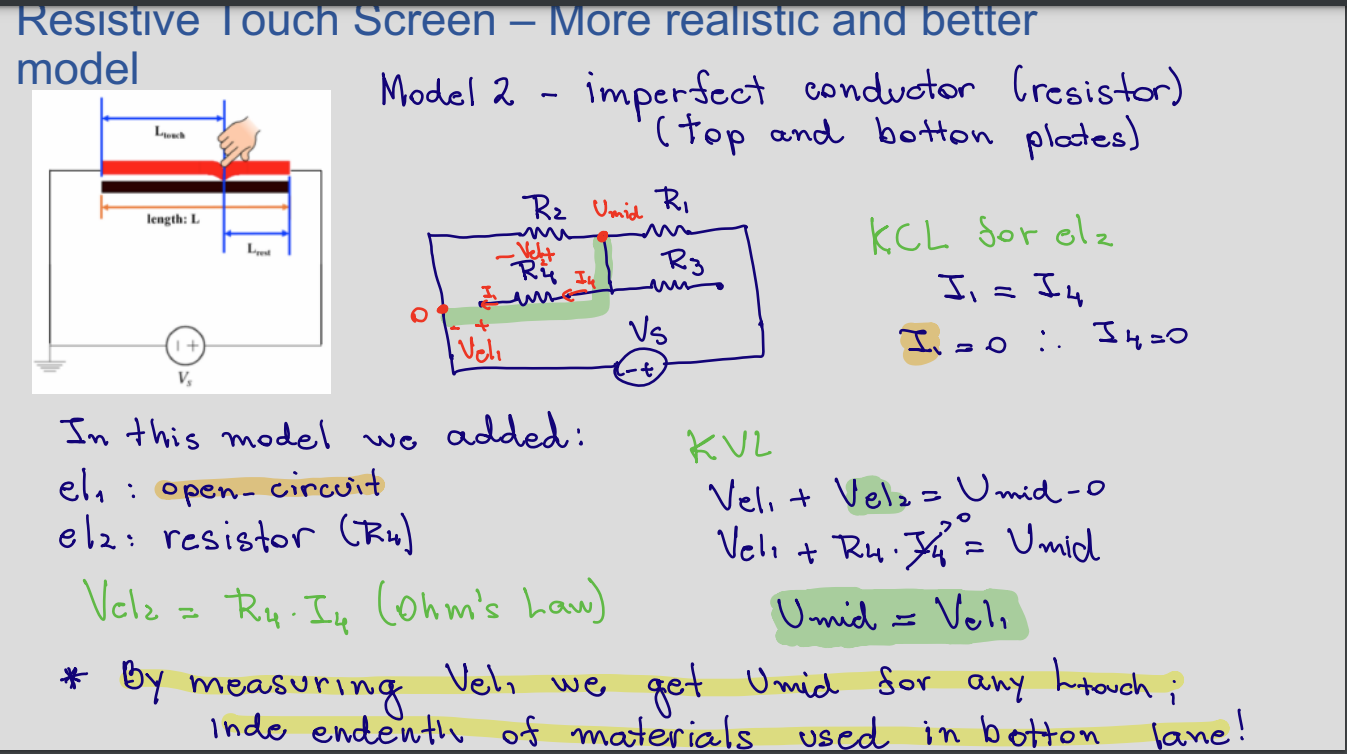 Resistive Touch Screen – More realistic and better
model
Model 2 - imperfect conductor (resistor)
(top and botton plates)
Ltouch
length: L
Lrest
Vs
R2 Umid R1
- Vel2 +
R4 I4 R3
I1
0
- +
Vel1
Vs
- +
KCL for el2
I1 = I4
I1 = 0 ∴ I4=0
In this model we added:
el1 : open-circuit
el2: resistor (R4)
Vel2 = R4 · I4 (Ohm's Law)
KVL
Vel1 + Vel2 = Umid-0
Vel1 + R4 · I4 0 = Umid
Umid = Vel1
* By measuring Vel1 we get Umid for any Ltouch ;
of materials used in botton lane!